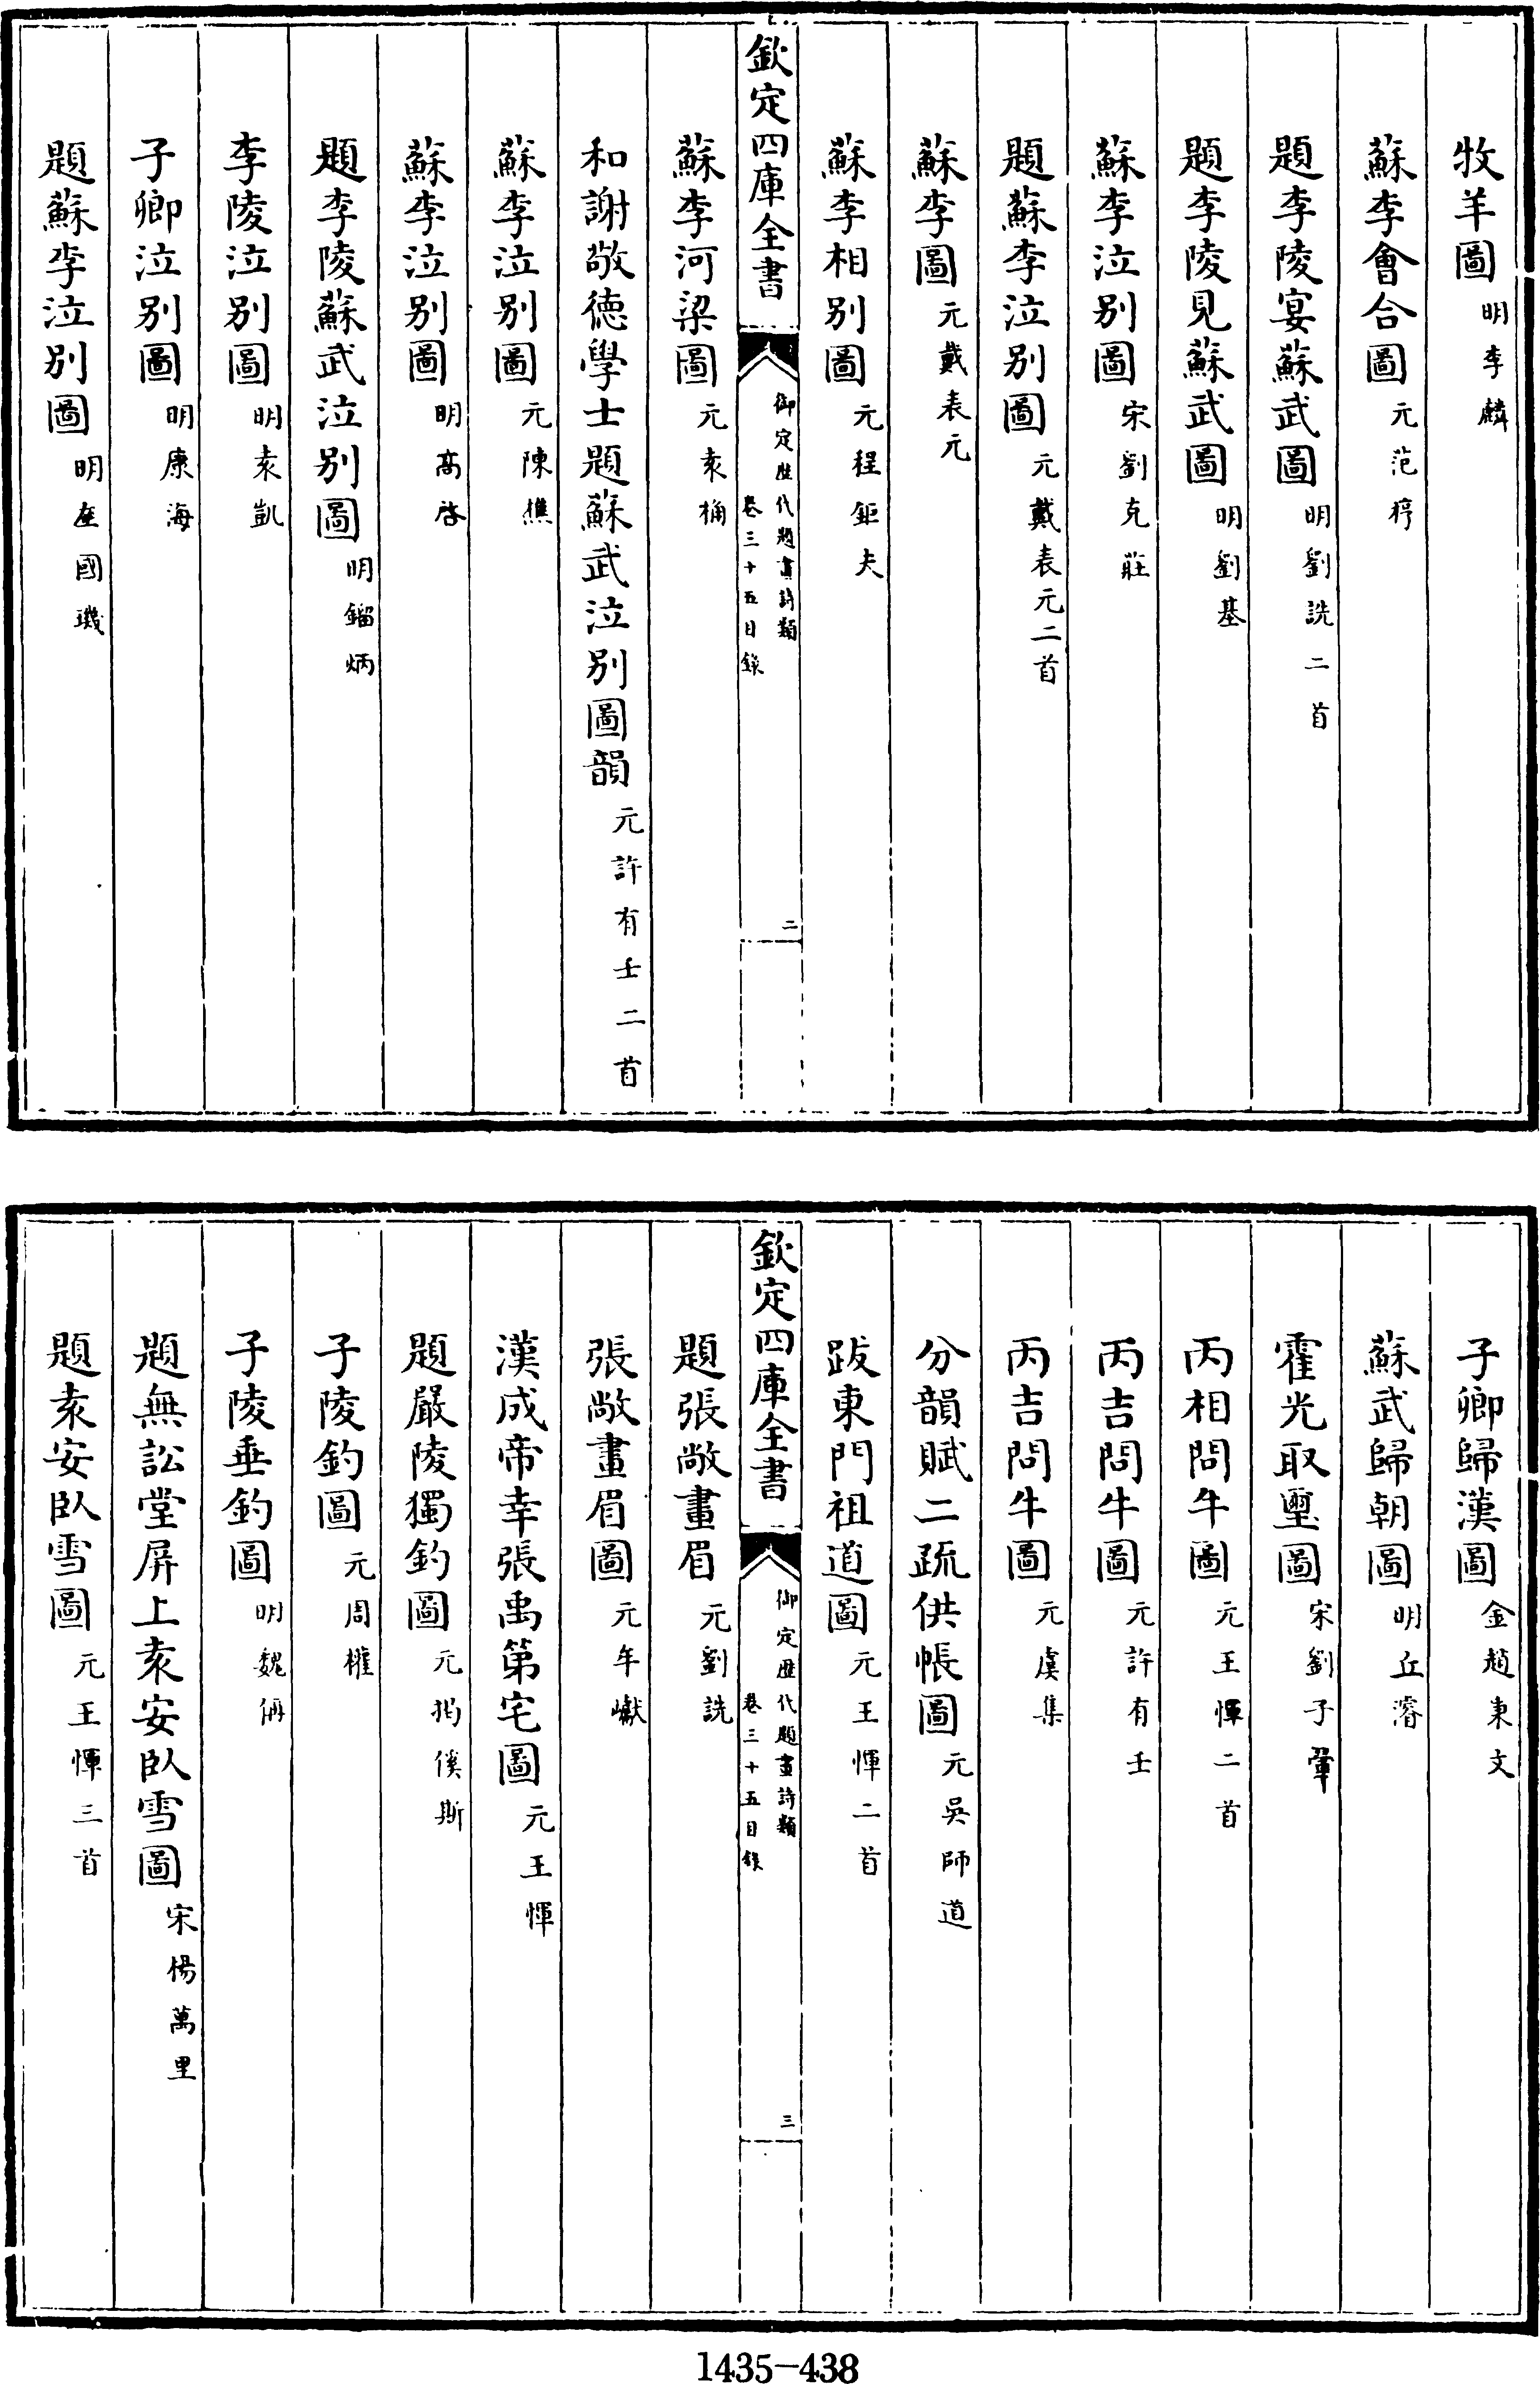 牧羊圖 明李麟
蘇李會合圖 元范梈
題李陵宴蘇武圖 明劉詵二首
題李陵見蘇武圖 明劉基
蘇李泣别圖 宋劉克莊
題蘇李泣别圖 元戴表元二首
蘇李圖 元戴表元
蘇李相别圖 元程鉅夫
欽定四庫全書
御定歴代題畫詩類
卷三十五目錄
二
蘇李河梁圖 元袁桷
和謝敬德學士題蘇武泣别圖韻 元許有壬二首
蘇李泣别圖 元陳樵
蘇李泣别圖 明高啓
題李陵蘇武泣别圖 明鎦炳
李陵泣别圖 明袁凱
子卿泣别圖 明康海
題蘇李泣别圖 明左國璣
子卿歸漢圖 金趙秉文
蘇武歸朝圖 明丘濬
霍光取璽圖 宋劉子翬
丙相問牛圖 元王惲二首
丙吉問牛圖 元許有壬
丙吉問牛圖 元虞集
分韻賦二疏供帳圖 元吳師道
跋東門祖道圖 元王惲二首
欽定四庫全書
御定歴代題畫詩類
卷三十五目錄
三
題張敞畫眉 元劉詵
張敞畫眉圖 元牟巘
漢成帝幸張禹第宅圖 元王惲
題嚴陵獨釣圖 元揭傒斯
子陵釣圖 元周權
子陵垂釣圖 明魏偁
題無訟堂屏上袁安臥雪圖 宋楊萬里
題袁安臥雪圖 元王惲三首
1435-438